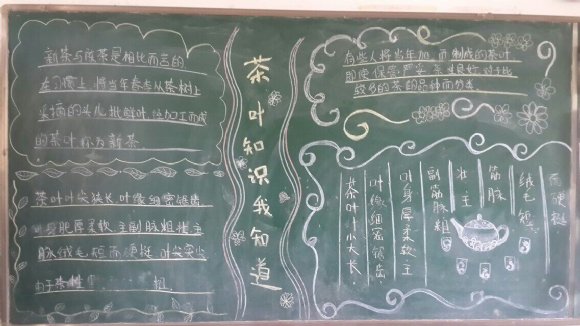 新茶与陈茶是相比而言的
在习惯上,将当年春季从茶树上
采摘的头几批鲜叶,经加工而成
的茶叶称为新茶
茶叶叶尖狭长,叶像细密锯齿
叶身肥厚柔软,主副脉粗壮主
脉绒毛短而硬挺,叶尖尖
由于茶树
茶叶知识我知道
有些人将当年加 而制成的茶叶
较多的茶的品种而分类
茶叶叶小尖长,
叶像细密锯齿,
叶身厚柔软主
副筋脉粗
壮主
筋脉
绒毛短
而硬挺